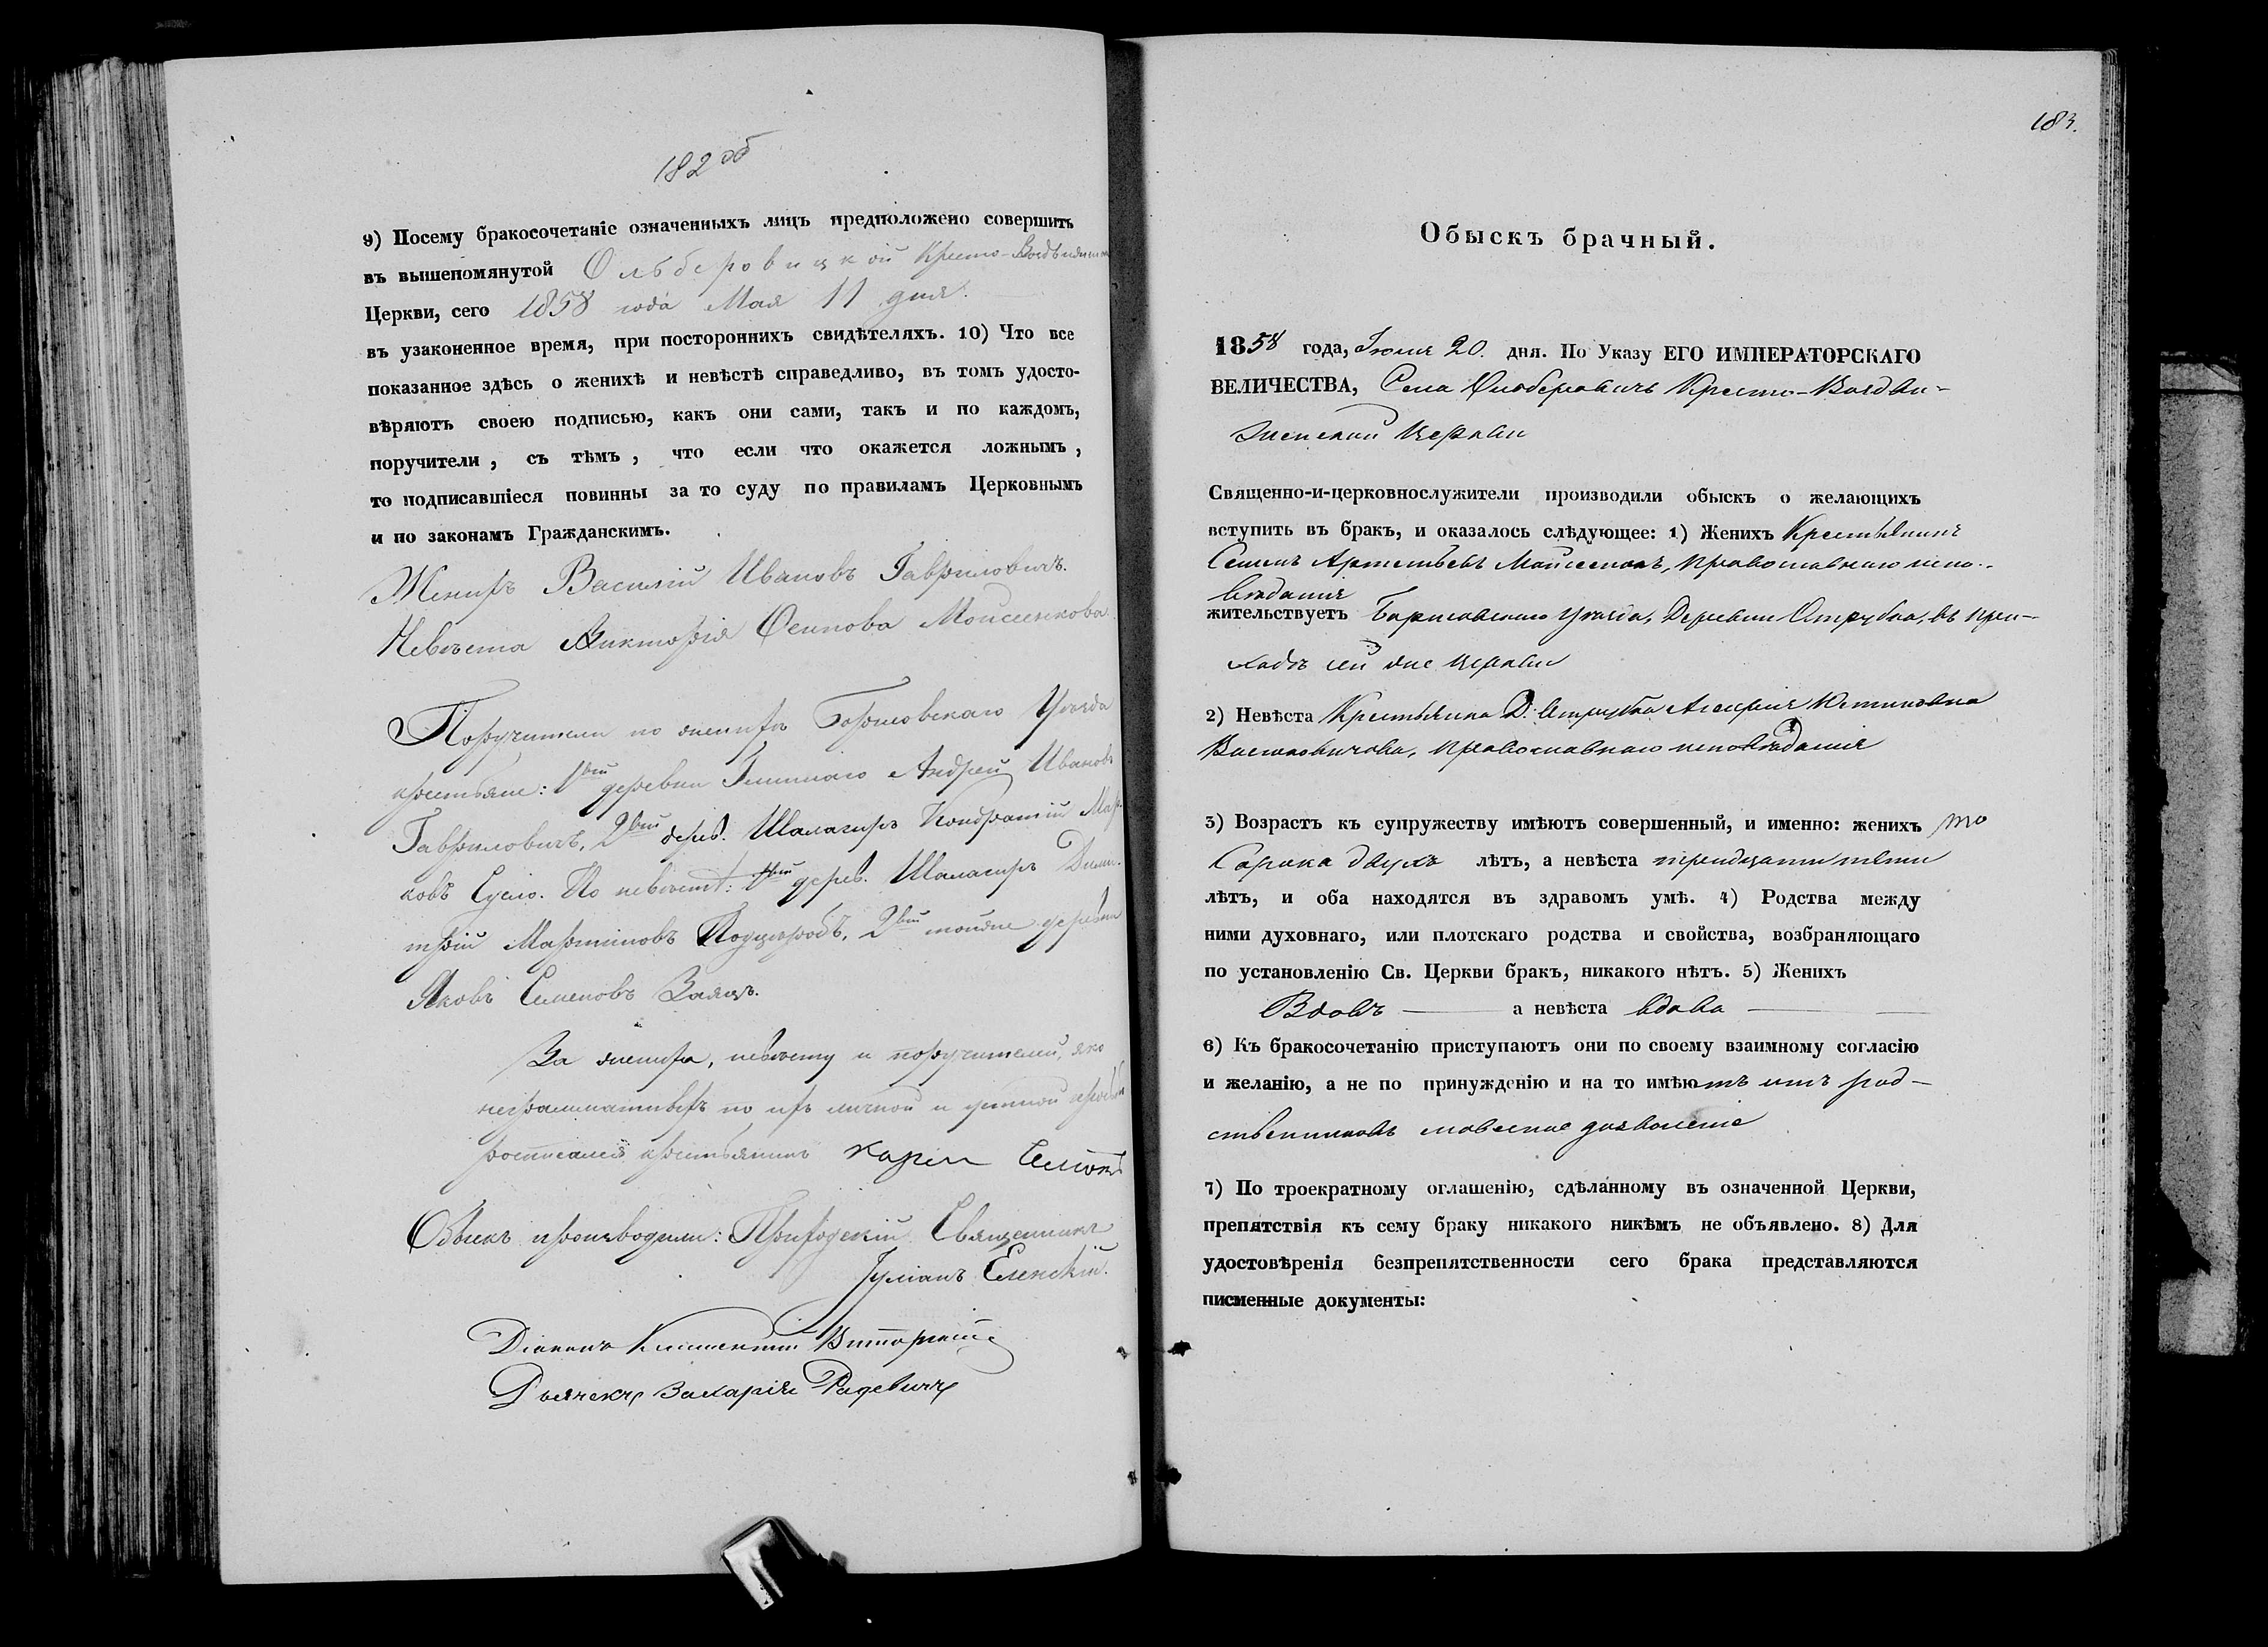 182 об
9) Посему бракосочетаніе означенныхъ лицъ предположено совершить
въ вышепомянутой Ольберовицкой Кресто-Воздвиженск
Церкви, сего 1858 года Мая 11 дня.
въ узаконенное время, при постороннихъ свидѣтеляхъ. 10) Что все
показанное здѣсь о женихѣ и невѣстѣ справедливо, въ томъ удосто-
вѣряютъ своею подписью, какъ они сами, такъ и по каждомъ,
поручители, съ тѣмъ, что если что окажется ложнымъ,
то подписавшіеся повинны за то суду по правиламъ Церковнымъ
и по законамъ Гражданскимъ.
Женихъ Василій Ивановъ Гавриловичъ.
Невѣста Викторія Осипова Моисеенкова
Поручители по женихѣ Борисовскаго Уѣзда
крестьяне: 1вый деревни Андрей Ивановъ
Гавриловичъ, 2вый дерев. Шалагиръ Кондратій Мар-
ковъ Сусло. По невѣстѣ: 1вый дерев. Шалагиръ Дими-
трій Мартиновъ 2вый тойже деревни
Яковъ Семеновъ Заяцъ.
За жениха, невѣсту и поручителей, яко
неграматныхъ по ихъ личной и устной прозбѣ
росписался крестьянинъ Карпъ
Обыскъ производили: Приходскій Священникъ
Іуліанъ Еленскій.
Діаконъ Климентій
Дьячекъ Захарія Радевичъ
183.
Обыскъ брачный.
1858 года, Іюля 20. дня. По Указу ЕГО ИМПЕРАТОРСКАГО
ВЕЛИЧЕСТВА, Села Ольберовичъ Кресто-Воздви-
женской Церкви
Священно-и-церковнослужители производили обыскъ о желающихъ
вступить въ бракъ, и оказалось слѣдующее: 1) Женихъ Крестьянинъ
Семенъ Артемьевъ Моисеенокъ, Православнаго испо-
вѣданія
жительствуетъ Борисовскаго Уѣзда, Деревни Отрубка, въ при-
ходѣ сей же церкви
2) Невѣста Крестьянка Д. Отрубка Устиновна
православнаго исповѣданія
3) Возрастъ къ супружеству имѣютъ совершенный, и именно: женихъ то
Сорока двухъ лѣтъ, а невѣста тридцати пяти
лѣтъ, и оба находятся въ здравомъ умѣ. 4) Родства между
ними духовнаго, или плотскаго родства и свойства, возбраняющаго
по установленію Св. Церкви бракъ, никакого нѣтъ. 5) Женихъ
Вдовъ — а невѣста вдова —
6) Къ бракосочетанію приступаютъ они по своему взаимному согласію
и желанію, а не по принужденію и на то имѣютъ отъ род-
ственниковъ словесное дозволеніе
7) По троекратному оглашенію, сдѣланному въ означенной Церкви,
препятствія къ сему браку никакого никѣмъ не объявлено. 8) Для
удостовѣренія безпрепятственности сего брака представляются
писменные документы: